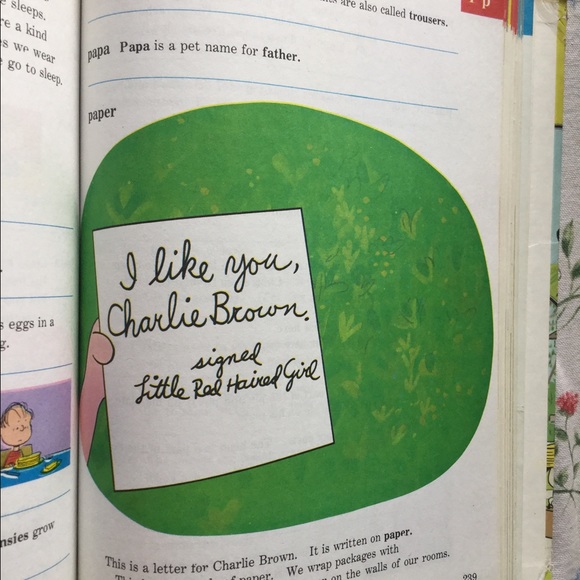 sleeps.
re a kind
es we wear
go to sleep.
s eggs in a
g.
nsies grow
are also called trousers.
P p
papa Papa is a pet name for father.
paper
I like you,
Charlie Brown.
signed
Little Red Haired Girl
This is a letter for Charlie Brown. It is written on paper.
of paper. We wrap packages with
on the walls of our rooms.
239